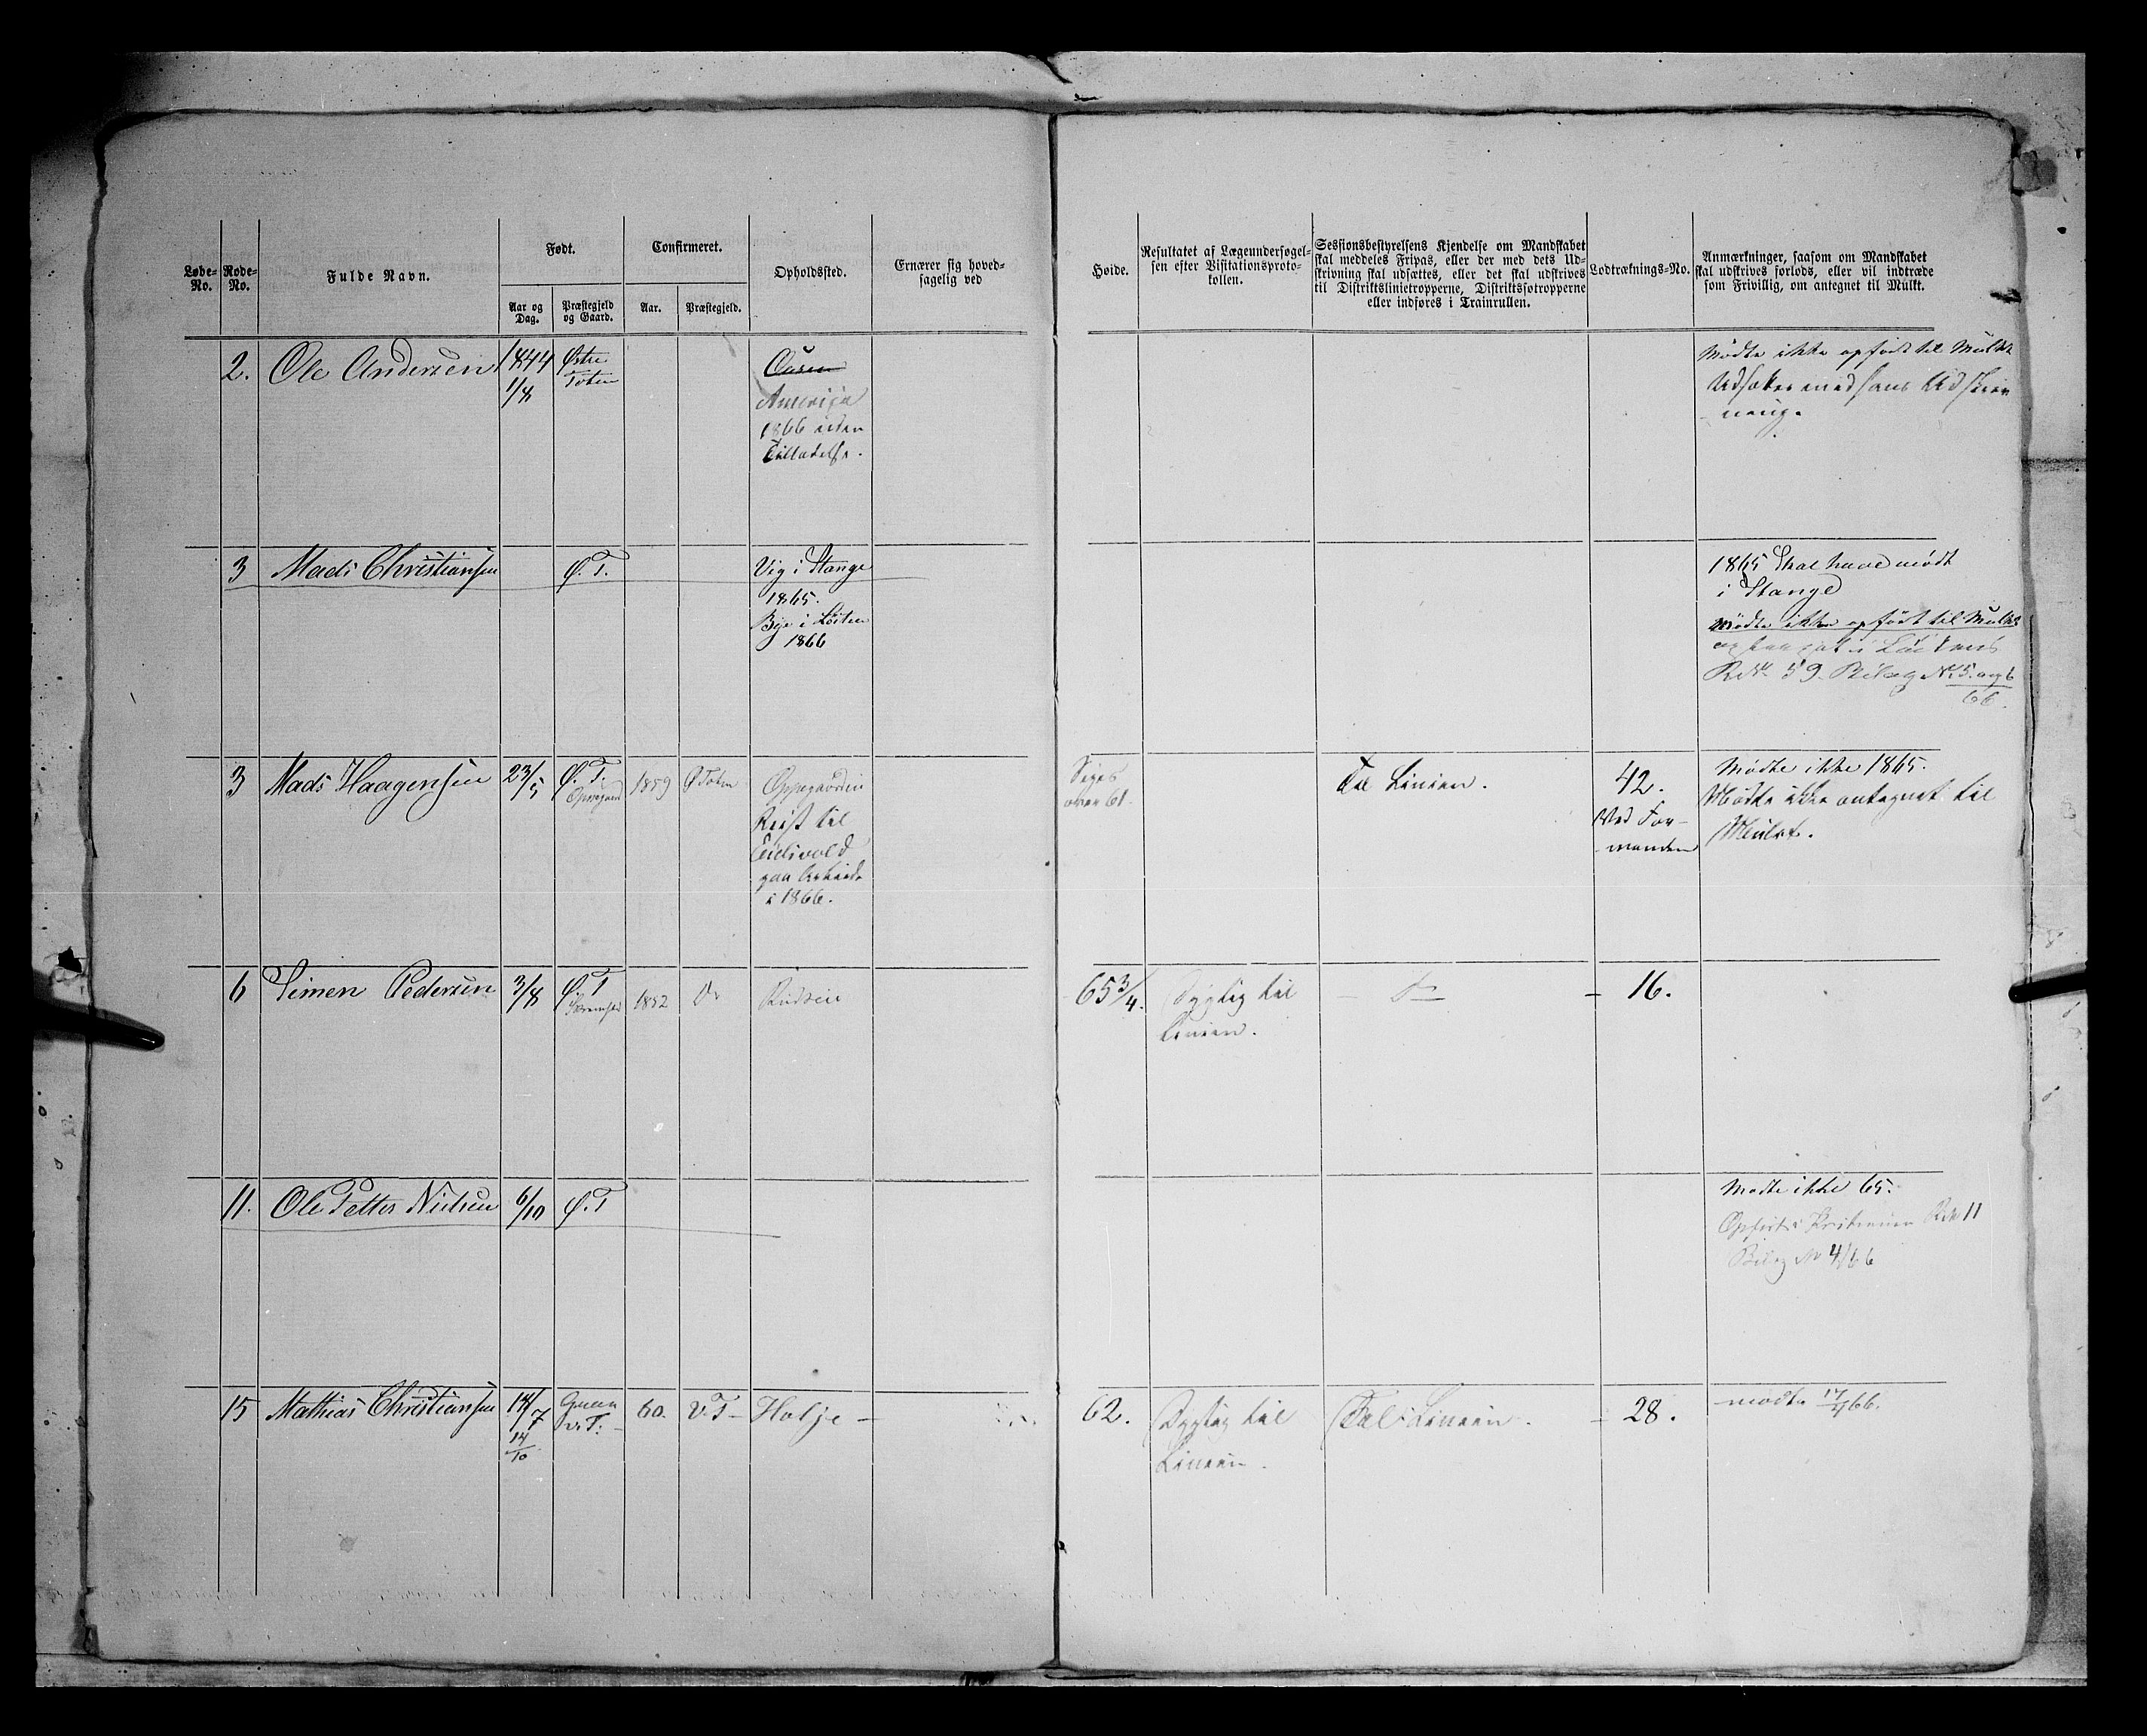 Løbe-No.
Rode-No.
Fulde Navn.
Født.
Aar og Dag.
Præstegjeld og Gaard.
Confirmeret.
Aar.
Præstegjeld.
Opholdssted.
Ernærer sig hoved-
sagelig ved
Høide.
Resultatet af Lægeundersøgel-
sen efter Visitationsproto-
kollen.
Sessionsbestyrelsens Kjendelse om Mandskabet
skal meddeles Fripas, eller der med dets Ud-
skrivning skal udsættes, eller det skal udskrives
til Distriktslinietropperne, Distriktsfotropperne
eller indføres i Trainrullen.
Lodtræknings-No.
Anmærkninger, saasom om Mandskabet
skal udskrives forlods, eller vil indtræde
som Frivillig, om antegnet til Mulkt.
2. Ole Andersen 1844 Østre
1/8 Toten
Amerika
1866 uden
Tilladelse.
Mødte ikke opført til Mulkt
Udsættes med hans Udskriv
ning.
3 Mads Christiansen Ø. T. Vig i Stange
1865.
Bye i Løiten
1866
1865 Skal have mødt
i Stange
Mødte ikke opført til Mulkt
59. Bilag No 5. og 6
66.
3 Mads Haagensen 23/5 Ø. T. 1859 Ø Toten Oppegaardeie
Reist til
Eidsvold
paa Arbeide
i 1866.
Siges
over 61.
Til Linien. 42.
Ved For-
manden
Mødte ikke 1865.
Mødte ikke antegnet til
Mulkt.
6 Simen Pedersen 3/8 Ø. T 1852 Do 65 3/4. Dygtig til
Linien.
16.
11. Ole Petter Nielsen 6/10 Ø. T
Mødte ikke 65.
Opført i Kristiania Rde 11
Bilag No 4/66
15 Mathias Christiansen 14/7 V. T. 60. V. T - Holje -
14/10
62. Dygtig til
Linien.
Til Linien. - 28.
mødte 17/4 66.